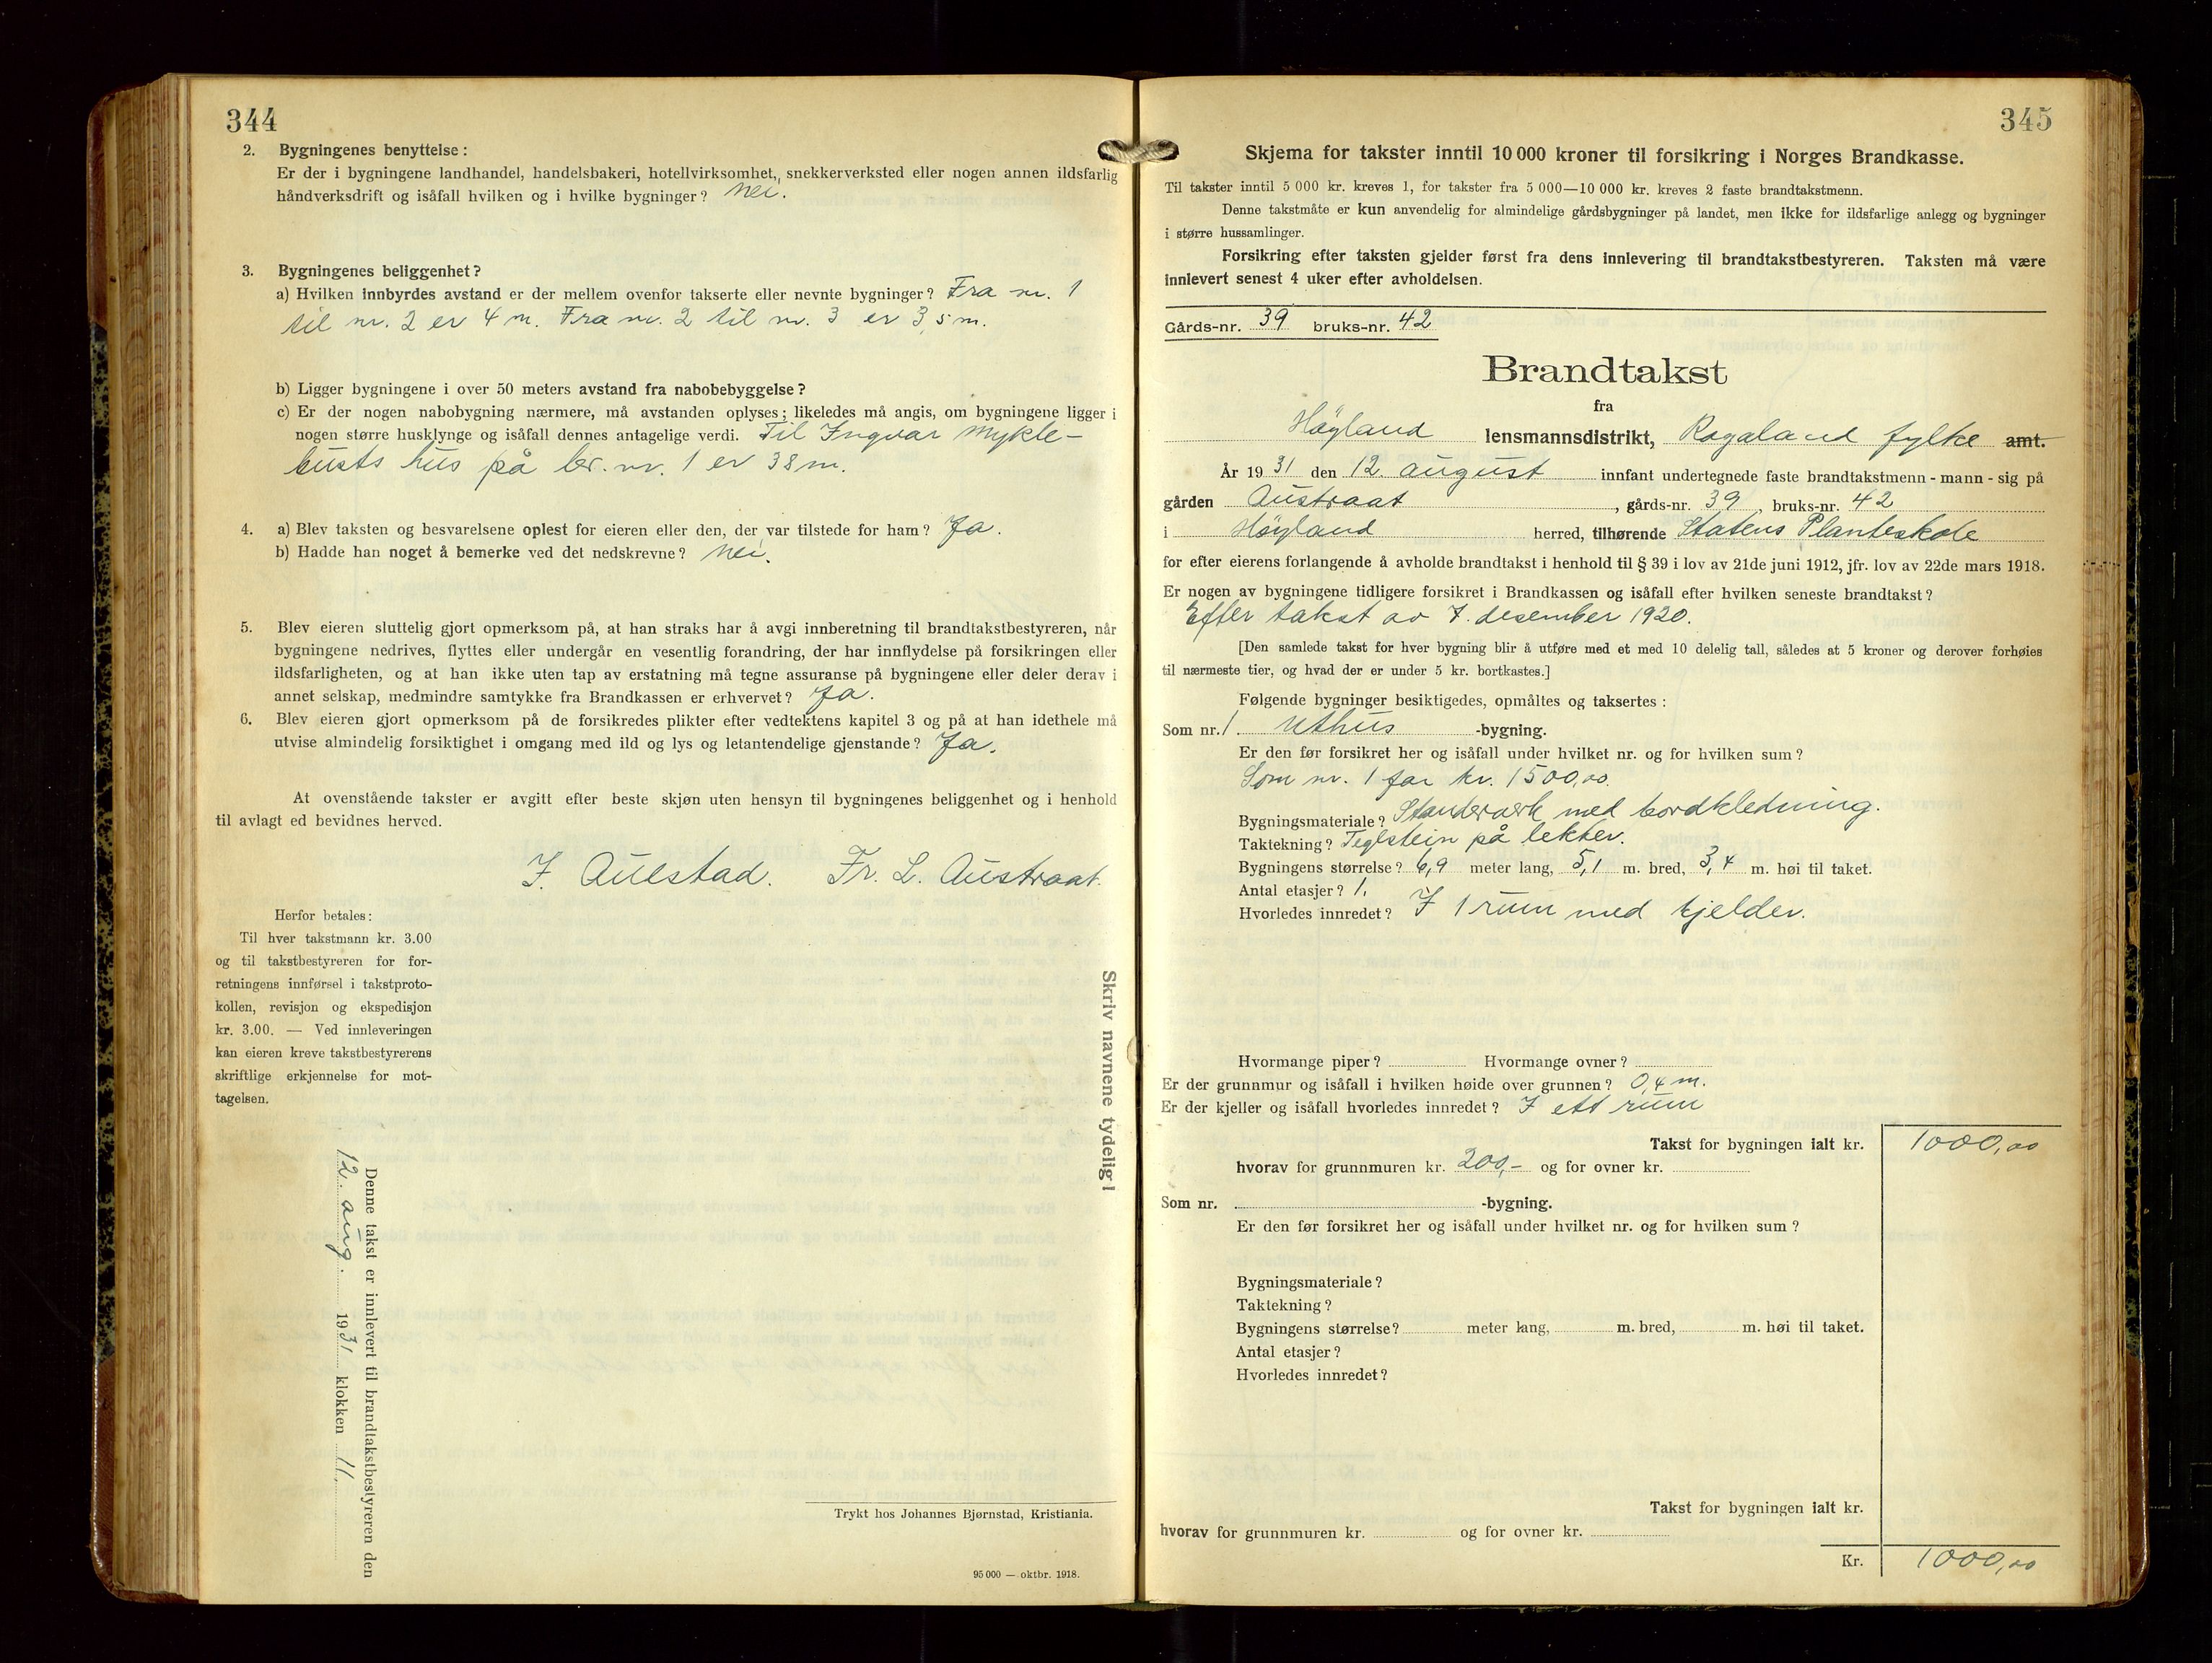 344
2. Bygningenes benyttelse :
Er der i bygningene landhandel, handelsbakeri, hotellvirksomhet, snekkerverksted eller nogen annen ildsfarlig
håndverksdrift og isåfall hvilken og i hvilke bygninger? Nei.
3. Bygningenes beliggenhet?
a) Hvilken innbyrdes avstand er der mellem ovenfor takserte eller nevnte bygninger? Fra nr. 1
til nr. 2 er 4 m. Fra nr. 2 til nr. 3 er 3,5 m.
b) Ligger bygningene i over 50 meters avstand fra nabobebyggelse?
c) Er der nogen nabobygning nærmere, må avstanden oplyses; likeledes må angis, om bygningene ligger i
nogen større husklynge og isåfall dennes antagelige verdi. Til Ingvar Mykle-
busts hus på br. nr. 1 er 38 m.
4. a) Blev taksten og besvarelsene oplest for eieren eller den, der var tilstede for ham? Ja.
b) Hadde han noget å bemerke ved det nedskrevne? Nei.
5. Blev eieren sluttelig gjort opmerksom på, at han straks har å avgi innberetning til brandtakstbestyreren, når
bygningene nedrives, flyttes eller undergår en vesentlig forandring, der har innflydelse på forsikringen eller
ildsfarligheten, og at han ikke uten tap av erstatning må tegne assuranse på bygningene eller deler derav i
annet selskap, medmindre samtykke fra Brandkassen er erhvervet? Ja.
6. Blev eieren gjort opmerksom på de forsikredes plikter efter vedtektens kapitel 3 og på at han idethele må
utvise almindelig forsiktighet i omgang med ild og lys og letantendelige gjenstande? Ja.
At ovenstående takster er avgitt efter beste skjøn uten hensyn til bygningenes beliggenhet og i henhold
til avlagt ed bevidnes herved.
J. Aulstad. Fr. L. Austraat.
Herfor betales:
Til hver takstmann kr. 3.00
og til takstbestyreren for for-
retningens innførsel i takstproto-
kollen, revisjon og ekspedisjon
kr. 3.00. — Ved innleveringen
kan eieren kreve takstbestyrerens
skriftlige erkjennelse for mot-
tagelsen.
Skriv navnene tydelig!
Denne takst er innlevert til brandtakstbestyreren den
12. aug. 1931 klokken 11.
Trykt hos Johannes Bjørnstad, Kristiania.
95 000 — oktbr. 1918.
345
Skjema for takster inntil 10 000 kroner til forsikring i Norges Brandkasse.
Til takster inntil 5 000 kr. kreves 1, for takster fra 5 000—10 000 kr. kreves 2 faste brandtakstmenn.
Denne takstmåte er kun anvendelig for almindelige gårdsbygninger på landet, men ikke for ildsfarlige anlegg og bygninger
i større hussamlinger.
Forsikring efter taksten gjelder først fra dens innlevering til brandtakstbestyreren. Taksten må være
innlevert senest 4 uker efter avholdelsen.
Gårds-nr. 39 bruks-nr. 42
Brandtakst
fra
Høyland lensmannsdistrikt, Rogaland fylke amt.
År 19 31 den 12. august innfant undertegnede faste brandtakstmenn - mann - sig på
gården Austraat, gårds-nr. 39, bruks-nr. 42
i Høyland herred, tilhørende Statens Planteskole
for efter eierens forlangende å avholde brandtakst i henhold til § 39 i lov av 21de juni 1912, jfr. lov av 22de mars 1918.
Er nogen av bygningene tidligere forsikret i Brandkassen og isåfall efter hvilken seneste brandtakst?
Efter takst av 7. desember 1920.
[Den samlede takst for hver bygning blir å utføre med et med 10 delelig tall, således at 5 kroner og derover forhøies
til nærmeste tier, og hvad der er under 5 kr. bortkastes.]
Følgende bygninger besiktigedes, opmåltes og taksertes :
Som nr. 1 Uthus -bygning.
Er den før forsikret her og isåfall under hvilket nr. og for hvilken sum?
Som nr. 1 for kr. 1500,00
Bygningsmateriale? Standerverk med bordkledning.
Taktekning? Teglstein på lekter.
Bygningens størrelse? 6,9 meter lang, 5,1 m. bred, 3,4 m. høi til taket.
Antal etasjer? 1.
Hvorledes innredet? I 1 rum med kjelder.
Hvormange piper? Hvormange ovner?
Er der grunnmur og isåfall i hvilken høide over grunnen? 0,4 m.
Er der kjeller og isåfall hvorledes innredet? I ett rum
Takst for bygningen ialt kr. 1000,00
hvorav for grunnmuren kr. 200,- og for ovner kr.
Som nr. -bygning.
Er den før forsikret her og isåfall under hvilket nr. og for hvilken sum?
Bygningsmateriale?
Taktekning?
Bygningens størrelse? meter lang, m. bred, m. høi til taket.
Antal etasjer?
Hvorledes innredet?
Takst for bygningen ialt kr.
hvorav for grunnmuren kr. og for ovner kr.
Kr. 1000,00